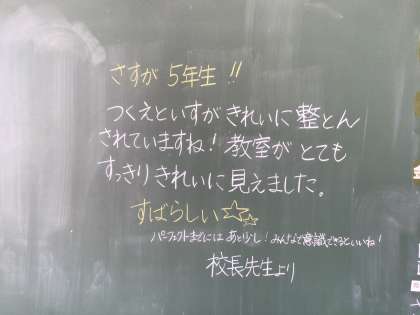 さすが 5年生!!
つくえといすがきれいに整とん
されていますね!教室がとても
すっきりきれいに見えました。
すばらしい☆☆
パーフェクトまでにはあと少し!みんなで意識できるといいね!
校長先生より